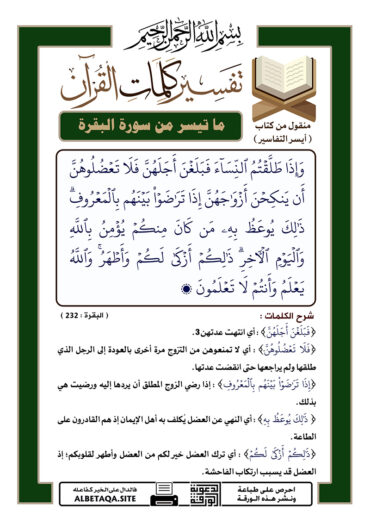 بِسْمِ اللَّهِ الرَّحْمَٰنِ الرَّحِيمِ
تفسير كلمات القرآن
ما تيسر من سورة البقرة
منقول من كتاب
( أيسر التفاسير )
وَإِذَا طَلَّقْتُمُ ٱلنِّسَآءَ فَبَلَغْنَ أَجَلَهُنَّ فَلَا تَعْضُلُوهُنَّ
أَن يَنكِحْنَ أَزْوَٰجَهُنَّ إِذَا تَرَٰضَوْا۟ بَيْنَهُم بِٱلْمَعْرُوفِ ۗ
ذَٰلِكَ يُوعَظُ بِهِۦ مَن كَانَ مِنكُمْ يُؤْمِنُ بِٱللَّهِ
وَٱلْيَوْمِ ٱلْـَٔاخِرِ ۗ ذَٰلِكُمْ أَزْكَىٰ لَكُمْ وَأَطْهَرُ ۗ وَٱللَّهُ
يَعْلَمُ وَأَنتُمْ لَا تَعْلَمُونَ
شرح الكلمات : ( البقرة : 232 )
﴿فَبَلَغْنَ أَجَلَهُنَّ﴾ : أي انتهت عدتهن3.
﴿فَلَا تَعْضُلُوهُنَّ﴾ : أي لا تمنعوهن من التزوج مرة أخرى بالعودة إلى الرجل الذي
طلقها ولم يراجعها حتى انقضت عدتها.
﴿إِذَا تَرَٰضَوْا۟ بَيْنَهُم بِٱلْمَعْرُوفِ﴾ : إذا رضي الزوج المطلق أن يردها إليه ورضيت هي
بذلك.
﴿ ذَٰلِكَ يُوعَظُ بِهِ﴾ : أي النهي عن العضل يُكلف به أهل الإيمان إذ هم القادرون على
الطاعة.
﴿ذَٰلِكُمْ أَزْكَىٰ لَكُمْ﴾ : أي ترك العضل خير لكم من العضل وأطهر لقلوبكم؛ إذ
العضل قد يسبب ارتكاب الفاحشة.
احرص على طباعة
ونشر هذه الورقة
الدعوية
الورقة
فالدال على الخير كفاعله
ALBETAQA.SITE